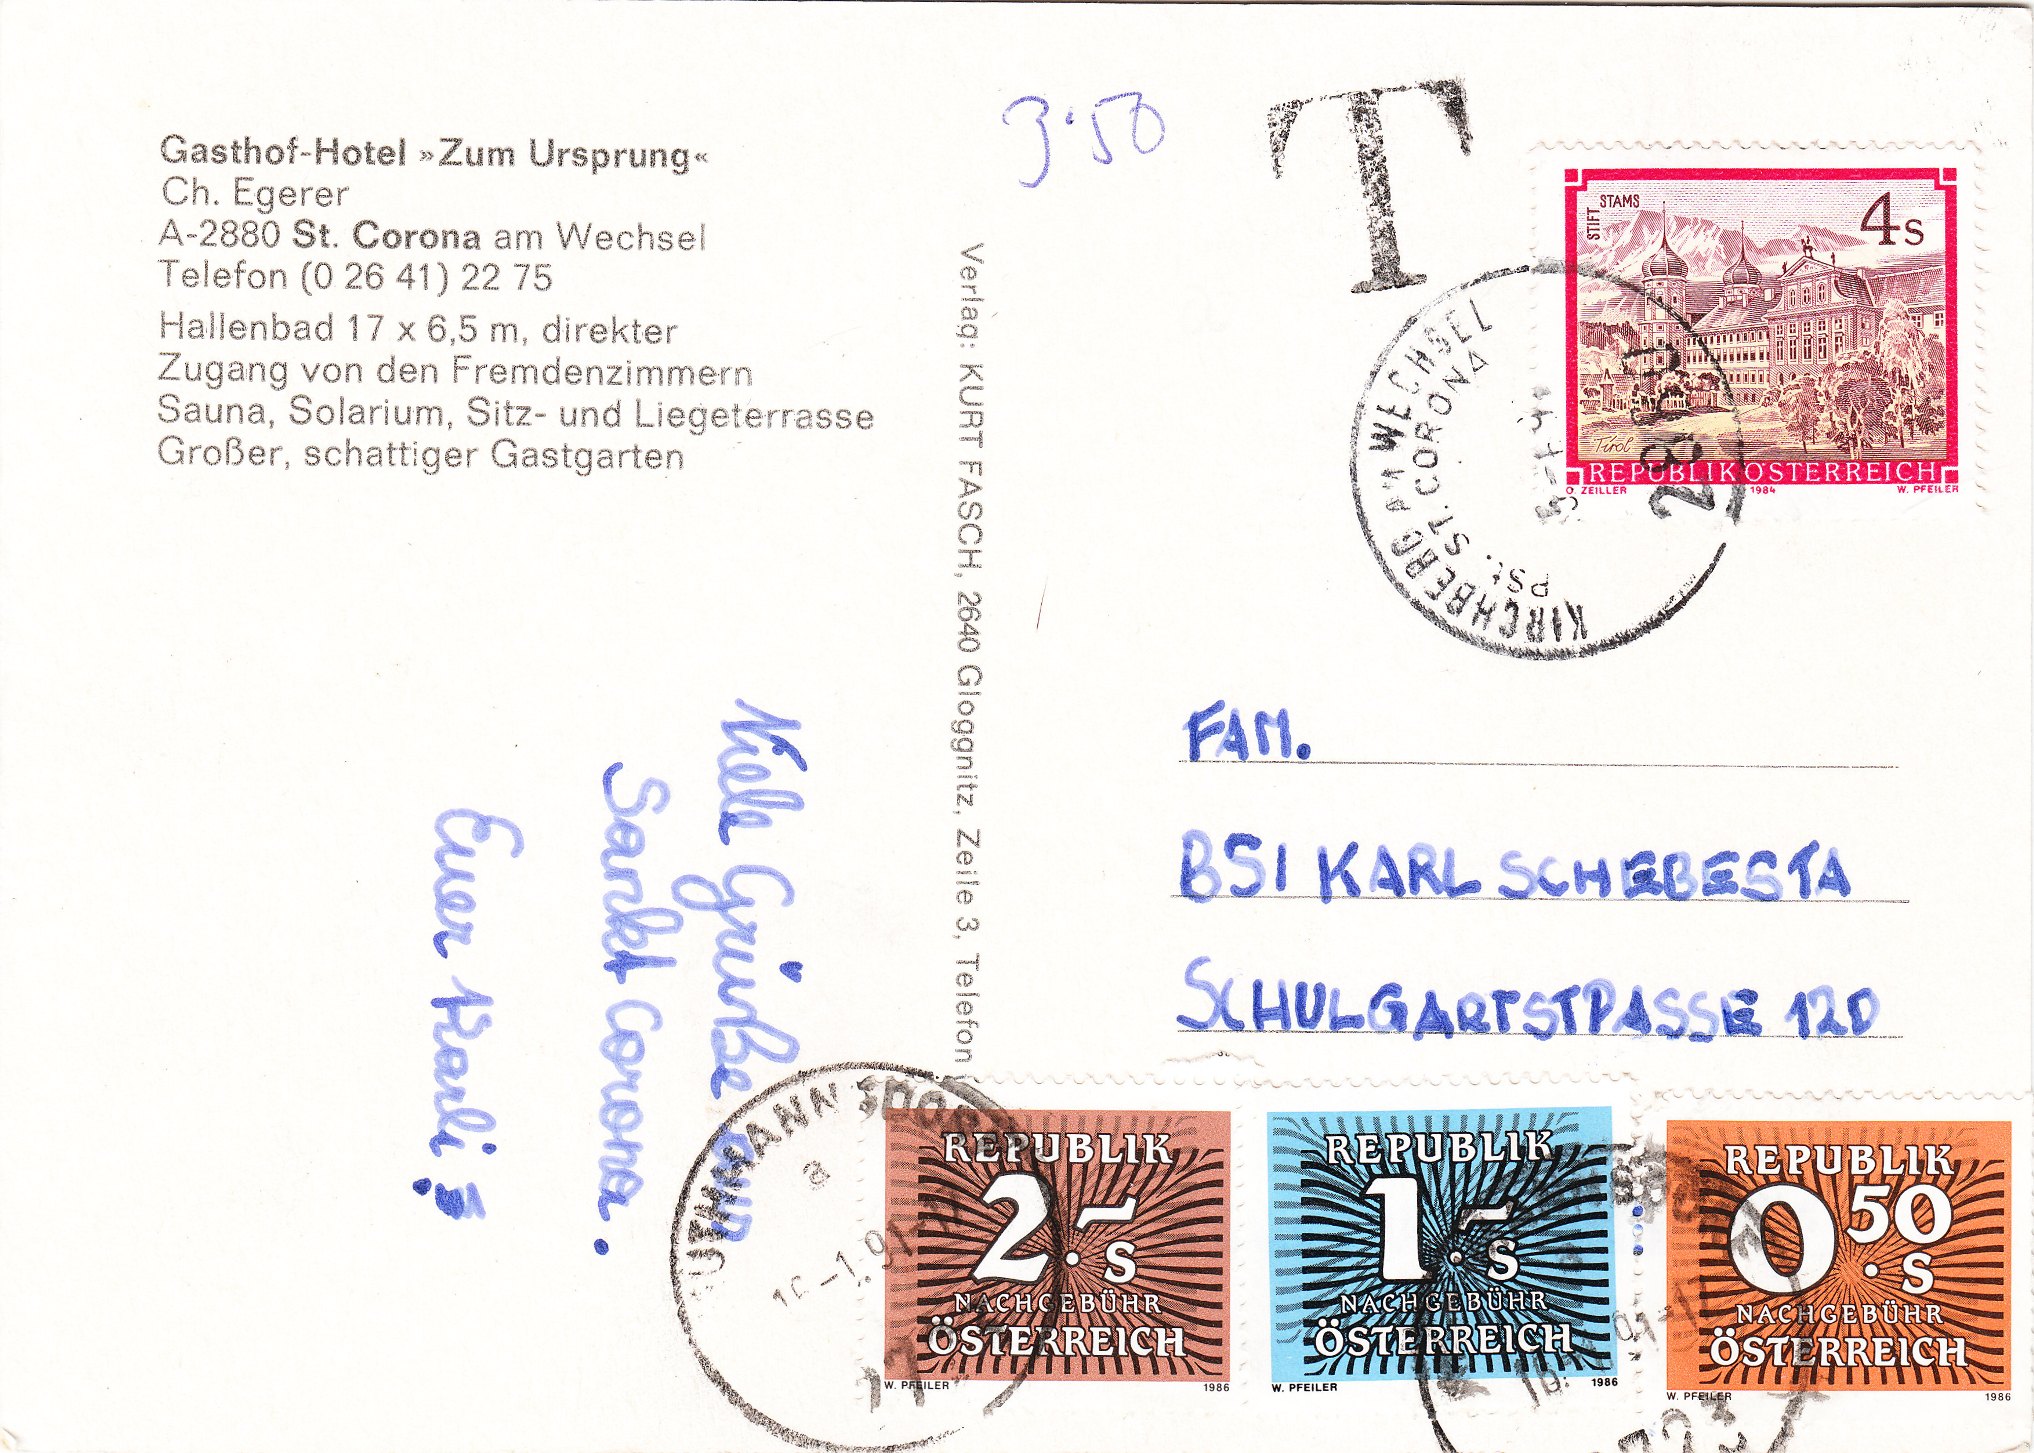 Gasthof-Hotel »Zum Ursprung«
Ch. Egerer
A-2880 St. Corona am Wechsel
Telefon (0 26 41) 22 75
Hallenbad 17 x 6,5 m, direkter
Zugang von den Fremdenzimmern
Sauna, Solarium, Sitz- und Liegeterrasse
Großer, schattiger Gastgarten
Viele Grüße aus
Sankt Corona.
Euer Karli
Verlag: KURT FASCH, 2640 Gloggnitz, Zeile 3, Telefon
3.50
T
STIFT STAMS
4s
Tirol
REPUBLIK ÖSTERREICH
O. ZEILLER 1984 W. PFEILER
KIRCHBERG AM WECHSEL
PSt. ST. CORONA
FAM.
BSI KARL SCHEBESTA
SCHULGARTSTRASSE 12D
REPUBLIK
2.- s
NACHGEBÜHR
ÖSTERREICH
W. PFEILER 1986
REPUBLIK
1.- s
NACHGEBÜHR
ÖSTERREICH
W. PFEILER 1986
REPUBLIK
0.50 s
NACHGEBÜHR
ÖSTERREICH
W. PFEILER 1986